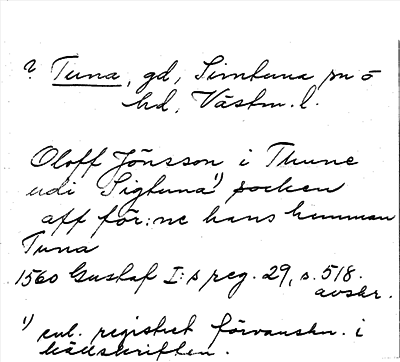 ? Tuna, gd, Simtuna sn o
hd, Västm. l.
Oloff Jönsson i Thune
udi Sigtuna¹⁾ socken
aff för:ne hans hemman
Tuna
1560 Gustaf I:s reg. 29, s. 518.
avskr.
¹⁾ enl. registret förvanskn. i
handskriften.